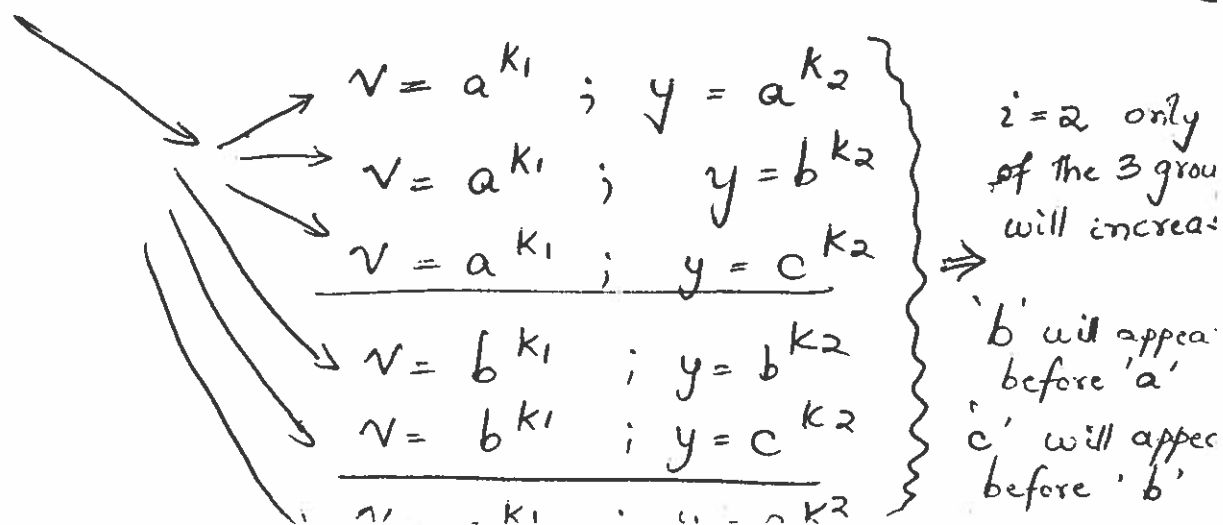 v = a^{k_1} ; y = a^{k_2}
v = a^{k_1} ; y = b^{k_2}
v = a^{k_1} ; y = c^{k_2}
v = b^{k_1} ; y = b^{k_2}
v = b^{k_1} ; y = c^{k_2}
k_1 ; y = k2
i = 2 only
of the 3 grou
will increas
⇒
'b' will appea
before 'a'
'c' will appea
before 'b'